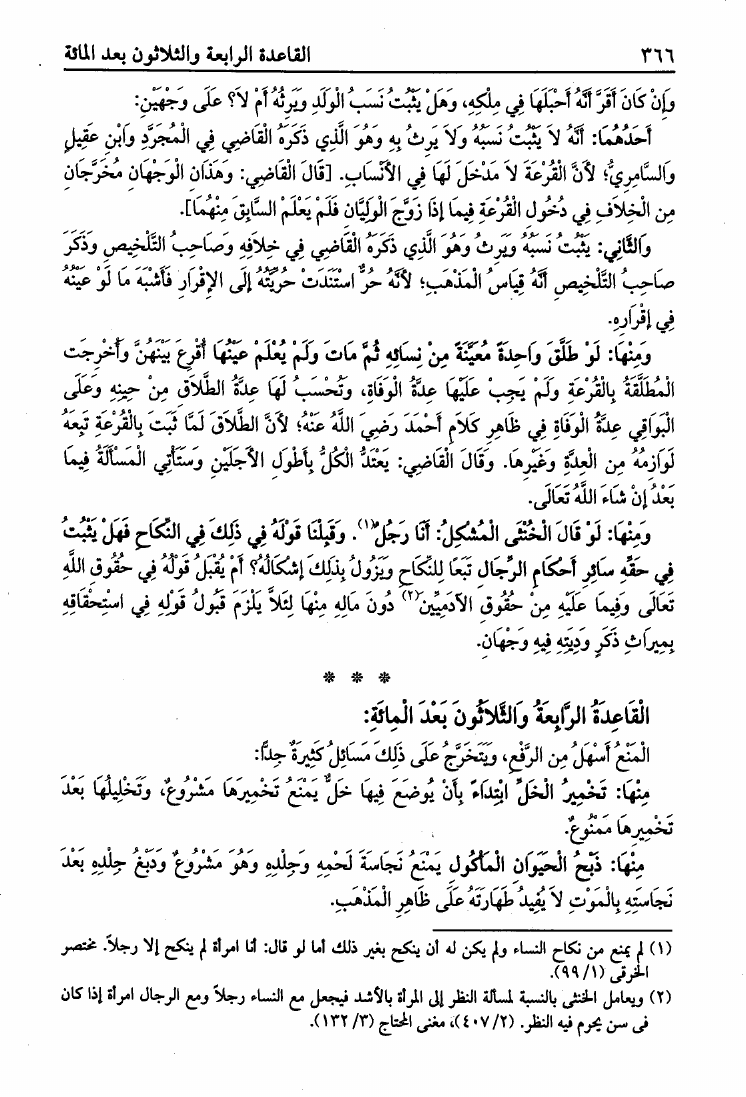 ٣٦٦ القاعدة الرابعة والثلاثون بعد المائة
وَإِنْ كَانَ أَقَرَّ أَنَّهُ أَحْبَلَهَا فِي مِلْكِهِ، وَهَلْ يَثْبُتُ نَسَبُ الْوَلَدِ وَيَرِثُهُ أَمْ لَا؟ عَلَى وَجْهَيْنِ:
أَحَدُهُمَا: أَنَّهُ لَا يَثْبُتُ نَسَبُهُ وَلَا يَرِثُ بِهِ وَهُوَ الَّذِي ذَكَرَهُ الْقَاضِي فِي الْمُجَرَّدِ وَابْنِ عَقِيلٍ
وَالسَّامِرِيُّ؛ لِأَنَّ الْقُرْعَةَ لَا مَدْخَلَ لَهَا فِي الْأَنْسَابِ. [قَالَ الْقَاضِي: وَهَذَانِ الْوَجْهَانِ مُخَرَّجَانِ
مِنِ الْخِلَافِ فِي دُخُولِ الْقُرْعَةِ فِيمَا إِذَا زَوَّجَ الْوَلِيَّانِ فَلَمْ يَعْلَمْ السَّابِقَ مِنْهُمَا].
وَالثَّانِي: يَثْبُتُ نَسَبُهُ وَيَرِثُ وَهُوَ الَّذِي ذَكَرَهُ الْقَاضِي فِي خِلَافِهِ وَصَاحِبُ التَّلْخِيصِ وَذَكَرَ
صَاحِبُ التَّلْخِيصِ أَنَّهُ قِيَاسُ الْمَذْهَبِ؛ لِأَنَّهُ حُرٌّ اسْتَنَدَتْ حُرِّيَّتُهُ إِلَى الْإِقْرَارِ فَأَشْبَهَ مَا لَوْ عَيَّنَهُ
فِي إِقْرَارِهِ.
وَمِنْهَا: لَوْ طَلَّقَ وَاحِدَةً مُعَيَّنَةً مِنْ نِسَائِهِ ثُمَّ مَاتَ وَلَمْ يُعْلَمْ عَيْنُهَا أُقْرِعَ بَيْنَهُنَّ وَأُخْرِجَتِ
الْمُطَلَّقَةُ بِالْقُرْعَةِ وَلَمْ يَجِبْ عَلَيْهَا عِدَّةُ الْوَفَاةِ، وَتُحْسَبُ لَهَا عِدَّةُ الطَّلَاقِ مِنْ حِينِهِ وَعَلَى
الْبَوَاقِي عِدَّةُ الْوَفَاةِ فِي ظَاهِرِ كَلَامِ أَحْمَدَ رَضِيَ اللَّهُ عَنْهُ؛ لِأَنَّ الطَّلَاقَ لَمَّا ثَبَتَ بِالْقُرْعَةِ تَبِعَهُ
لَوَازِمُهُ مِنَ الْعِدَّةِ وَغَيْرِهَا. وَقَالَ الْقَاضِي: يَعْتَدُّ الْكُلُّ بِأَطْوَلِ الْأَجَلَيْنِ وَسَتَأْتِي الْمَسْأَلَةُ فِيمَا
بَعْدُ إِنْ شَاءَ اللَّهُ تَعَالَى.
وَمِنْهَا: لَوْ قَالَ الْخُنْثَى الْمُشْكِلُ: أَنَا رَجُلٌ(١). وَقَبِلْنَا قَوْلَهُ فِي ذَلِكَ فِي النِّكَاحِ فَهَلْ يَثْبُتُ
فِي حَقِّهِ سَائِرِ أَحْكَامِ الرِّجَالِ تَبَعًا لِلنِّكَاحِ وَيَزُولُ بِذَلِكَ إِشْكَالُهُ؟ أَمْ يُقْبَلُ قَوْلُهُ فِي حُقُوقِ اللَّهِ
تَعَالَى وَفِيمَا عَلَيْهِ مِنْ حُقُوقِ الْآدَمِيِّينَ(٢) دُونَ مَالِهِ مِنْهَا لِئَلَّا يَلْزَمَ قَبُولُ قَوْلِهِ فِي اسْتِحْقَاقِهِ
بِمِيرَاثِ ذَكَرٍ وَدِيَتِهِ فِيهِ وَجْهَانِ.
* * *
الْقَاعِدَةُ الرَّابِعَةُ وَالثَّلَاثُونَ بَعْدَ الْمِائَةِ:
الْمَنْعُ أَسْهَلُ مِنِ الرَّفْعِ، وَيَتَخَرَّجُ عَلَى ذَلِكَ مَسَائِلُ كَثِيرَةٌ جِدًّا:
مِنْهَا: تَخْمِيرُ الْخَلِّ ابْتِدَاءً بِأَنْ يُوضَعَ فِيهَا خَلٌّ يَمْنَعُ تَخْمِيرَهَا مَشْرُوعٌ، وَتَخْلِيلُهَا بَعْدَ
تَخْمِيرِهَا مَمْنُوعٌ.
مِنْهَا: ذَبْحُ الْحَيَوَانِ الْمَأْكُولِ يَمْنَعُ نَجَاسَةَ لَحْمِهِ وَجِلْدِهِ وَهُوَ مَشْرُوعٌ وَدَبْغُ جِلْدِهِ بَعْدَ
نَجَاسَتِهِ بِالْمَوْتِ لَا يُفِيدُ طَهَارَتَهُ عَلَى ظَاهِرِ الْمَذْهَبِ.
(١) لم يمنع من نكاح النساء ولم يكن له أن ينكح بغير ذلك أما لو قال: أنا امرأة لم ينكح إلا رجلاً. مختصر
الخرقى (٩٩/١).
(٢) ويعامل الخنثى بالنسبة لمسألة النظر إلى المرأة بالأشد فيجعل مع النساء رجلاً ومع الرجال امرأة إذا كان
فى سن يحرم فيه النظر. (٤٠٧/٢)، مغنى المحتاج (١٣٢/٣).